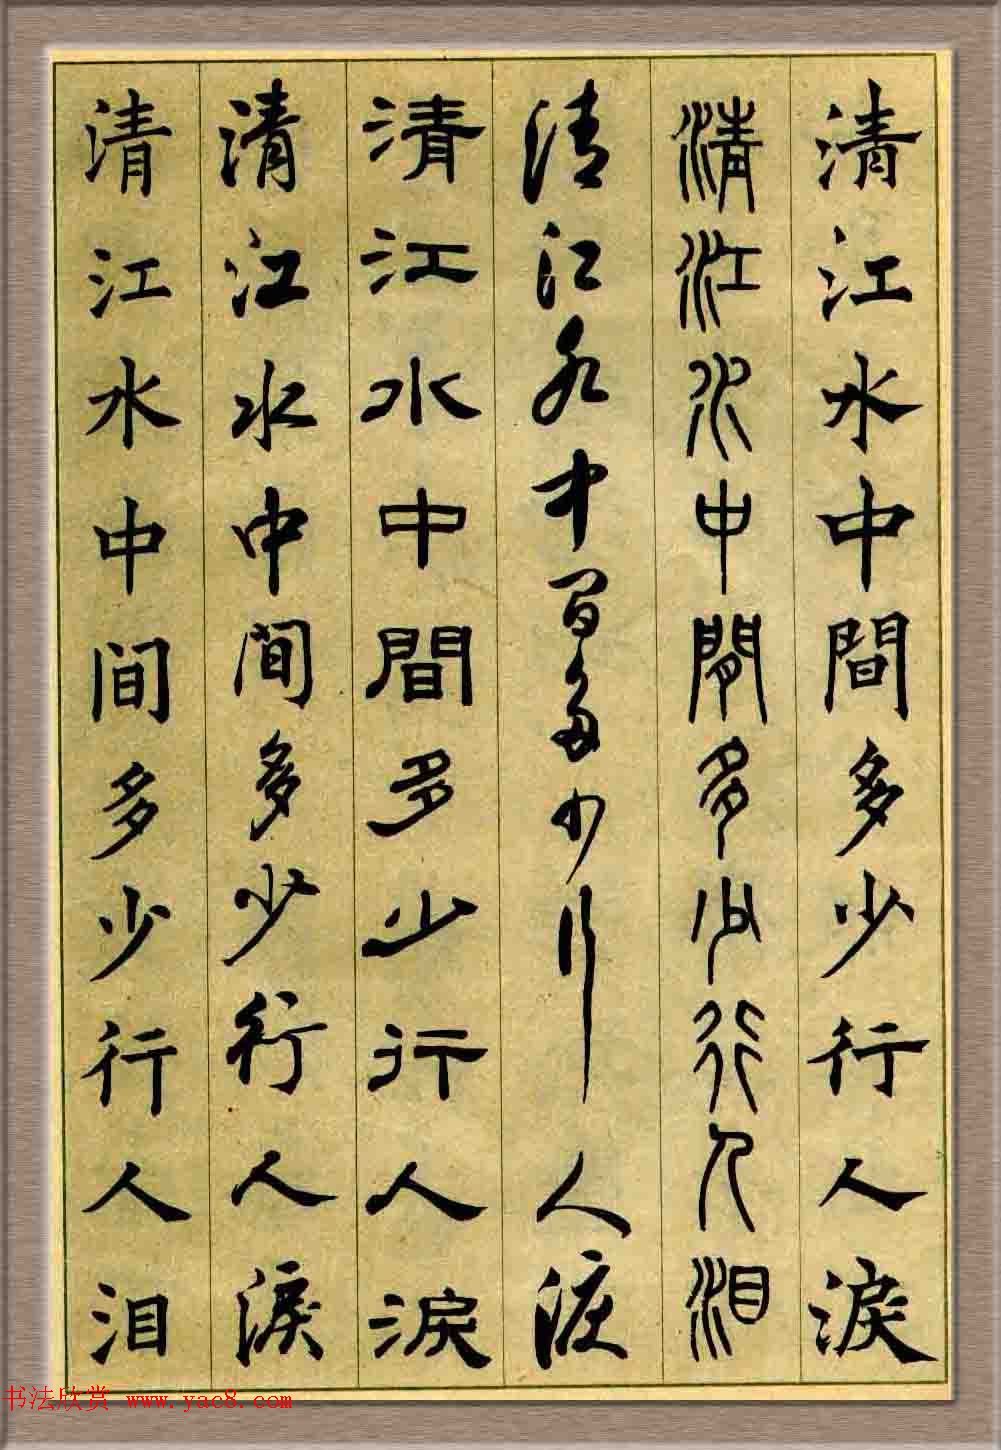 清江水中間多少行人淚
清江水中間多少行人泪
清江水中间多少行人淚
清江水中間多少行人淚
清江水中间多少行人淚
清江水中间多少行人泪
书法欣赏 www.yac8.com